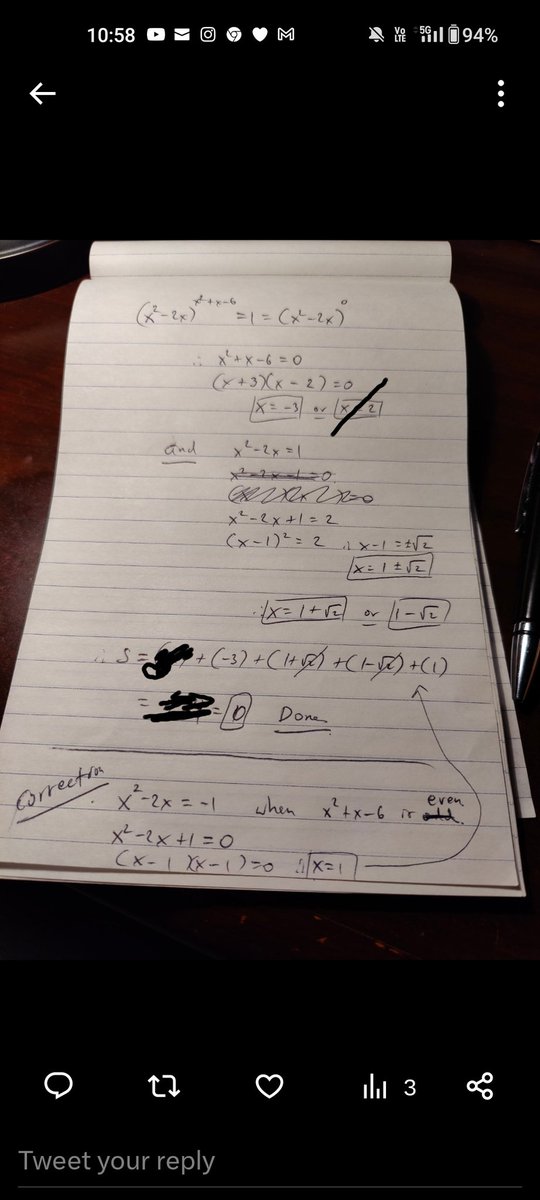 10:58 Vo LTE 5G 94%
(x²-2x)^(x²+x-6) = 1 = (x²-2x)^0
∴ x²+x-6=0
(x+3)(x-2)=0
x=-3 or x=2
and x²-2x=1
x²-2x-1=0
x²-2x+1=2
(x-1)²=2 ∴ x-1=±√2
x=1±√2
∴ x=1+√2 or 1-√2
∴ S = + (-3) + (1+√2) + (1-√2) + (1)
= = 0 Done
Correction
x²-2x=-1 when x²+x-6 is even.
x²-2x+1=0
(x-1)(x-1)=0 ∴ x=1
3
Tweet your reply